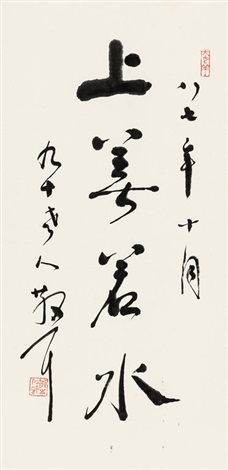 八七年十月
上善若水
九十老人散耳